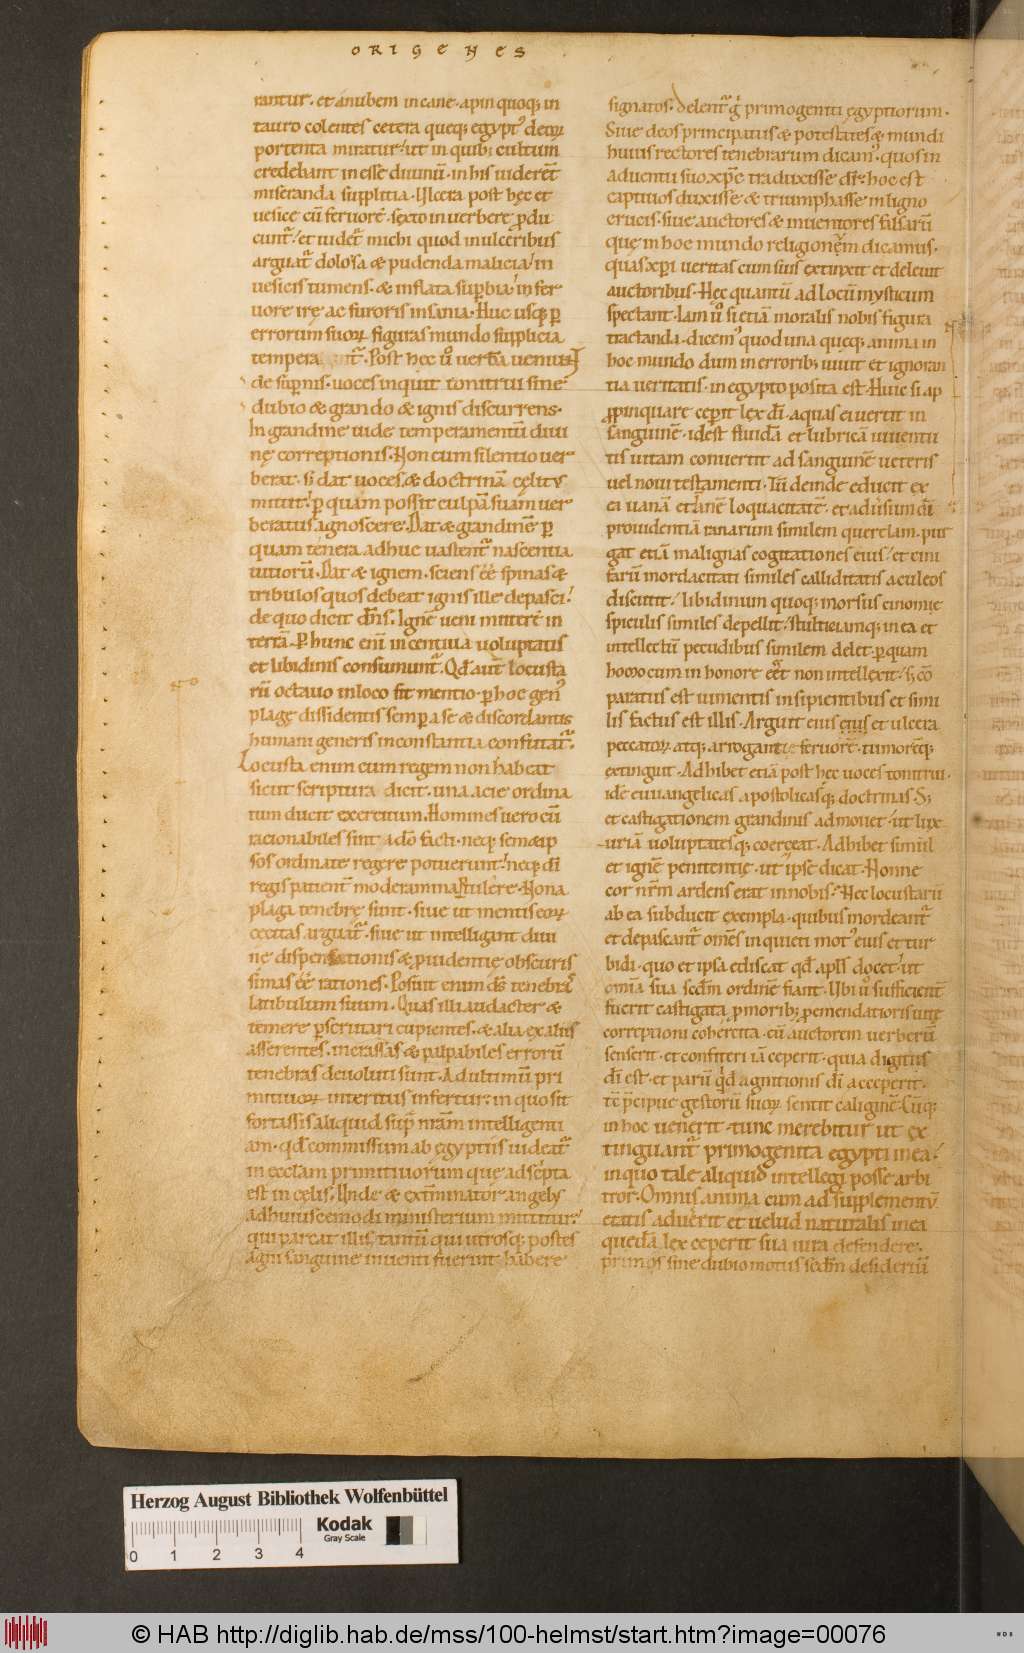 ORIGENES
rantur. et anubem in cane. apin quoq; in
tauro colentes cetera queq; egypt' deoꝝ
portenta miratur. ut in quib; cultum
credebant inesse diuinū. in his uiderēt
miseranda supplitia. Ulcera post hęc et
uesice cū feruorē. sexto in uerbere ꝓdu
cunt᷑. et uidet᷑ michi quod in ulceribus
arguat᷑ dolosa & pudenda malicia. in
uesicis tumens. & inflata suꝑbia. in fer
uore irę ac furoris insania. Huc usq; ꝑ
errorum suoꝝ figuras mundo supplicia
temperant᷑. Post hęc ů uerba ueniunt
de suꝑnis. uoces inquit tonitrui sine
dubio & grando & ignis discurrens.
In grandine uide temperamentū diui
nę correptionis. Non cum silentio uer
berat. s; dat uoces. & doctrinā cęlit'
mittit. ꝑ quam possit culpā suam uer
beratus ignoscere. Dat & grandinē. ꝑ
quam tenera adhuc uastent᷑ nascentia
uitiorū. Dat & ignem. sciens eē spinas &
tribulos quos debeat ignis ille depasci.
de quo dicit dn̄s. Ignē ueni mittere in
terrā. Ꝑ hunc enī incentiua uoluptatis
et libidinis consumunt᷑. Qd̄ aut̄ locusta
rū octauo in loco fit mentio. ꝑ hoc gen'
plagę dissidentis semꝑ a se & discordantis
humani generis inconstantia confutat᷑.
Locusta enim cum regem non habeat
sicut scriptura dicit. una acie ordina
tum ducit exercitum. Homines uero cū
racionabiles sint a dō facti. neq; semetip
sos ordinate regere potuerunt. neq; dī
regis patient᷑ moderamina tulere. Nona
plaga tenebrę sunt. siue ut mentis eoꝝ
cecitas arguat᷑. siue ut intelligant diui
nę dispensationis & ꝓuidentię obscuris
simas eē rationes. Posuit enim ds̄ tenebras
latibulum suum. Quas illi audacter &
temere ꝑscrutari cupientes. & alia ex aliis
asserentes. in crassas & palpabiles errorū
tenebras deuoluti sunt. Ad ultimū pri
mitiuoꝝ interitus infertur. in quo sit
fortassis aliquid supᷓ nr̄am intelligenti
am. qd̄ commissum ab egyptiis uideat᷑
in eccl̄am primitiuorum que adscripta
est in cęlis. Unde & ext̄minator angelus
ad huiuscemodi ministerium mittitur.
qui parcat illis tantū qui utrosq; postes
agni sanguine inuenti fuerint habere
signatos. Delent᷑ g̊ primogeniti ęgyptiorum.
Siue deos principatus & potestates & mundi
huius rectores tenebrarum dicam'. quos in
aduentu suo xp̄c traduxisse dr̄. hoc est
captiuos duxisse & triumphasse in ligno
crucis. siue auctores & inuentores falsarū
quę in hoc mundo religionēm dicamus.
quas xpi ueritas cum suis extinxit et deleuit
auctoribus. Hęc quantū ad locū mysticum
spectant. Iam ů si etiā moralis nobis figura
tractanda. dicem' quod una quęq; anima in
hoc mundo dum in errorib; uiuit et ignoran
tia ueritatis. in egypto posita est. Huic si ap
ꝓpinquare ceperit lex dī. aquas ei uertit in
sanguinē. id est fluidā et lubricā iuuentu
tis uitam conuertit ad sanguinē ueteris
uel noui testamenti. Tū deinde educit ex
ea uanā et inanē loquacitatē. et aduersum dī
prouidentiā ranarum similem querelam. pur
gat etiā malignas cogitationes eius. et cini
farū mordacitati similes calliditatis aculeos
discutit. libidinum quoq; morsus cinomię
spiculis similes depellit. stulticiamq; in ea et
intellectū pecudibus similem delet. ꝑ quam
homo cum in honore eēt non intellexit. s; cō
paratus est iumentis insipientibus et simi
lis factus est illis. Arguit eius eius et ulcera
peccatoꝝ. atq; arrogantie feruorē. tumorēq;
extinguit. Adhibet etiā post hęc uoces tonitrui.
idē euuangelicas apostolicasq; doctrinas. S;
et castigationem grandinis admouet. ut lux
uriā uoluptatesq; coerceat. Adhibet simul
et ignē penitentię. ut ipse dicat. Nonne
cor nr̄m ardens erat in nobis. Nec locustarū
ab ea subducit exempla. quibus mordeant᷑
et depascant᷑ om̄es inquieti mot' eius et tur
bidi. quo et ipsa ediscat qd̄ apl̄s docet. ut
omīa sua scd̄m ordinē fiant. Ubi ů sufficient᷑
fuerit castigata ꝑ moribꝫ ꝑ emendatioris uitę
correptioni cohercita. cū auctorem uerberū
senserit. et confiteri iā ceperit. quia digitus
dī est. et parū qid agnitionis dī acceperit.
tc̄ p̄cipue gestorū suoꝝ sentit caliginē. Cūq;
in hoc uenerit. tunc merebitur ut ex
tinguant᷑ primogenita egypti in ea.
in quo tale aliquid intellegi posse arbi
tror. Omnis anima cum ad supplementū
etatis aduerit et uelud naturalis in ea
quedā lex ceperit sua iura defendere.
primos sine dubio motus scd̄m desideriū
Herzog August Bibliothek Wolfenbüttel
Kodak
Gray Scale
0 1 2 3 4
© HAB http://diglib.hab.de/mss/100-helmst/start.htm?image=00076